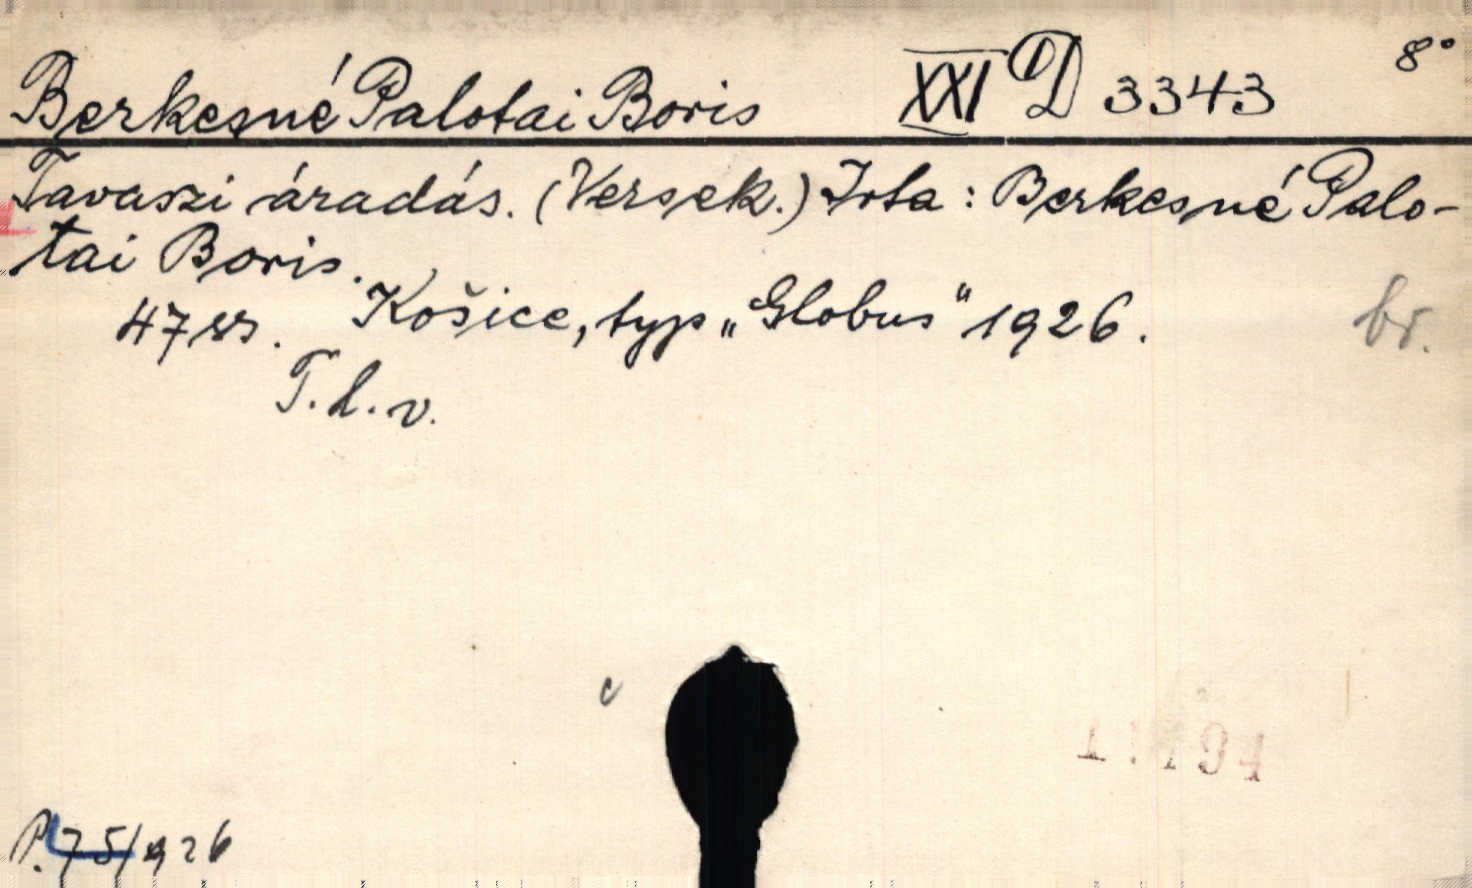 Berkesné Palotai Boris XXI D 3343 8°
Tavaszi áradás. (Versek.) Irta: Berkesné Palo-
tai Boris.
47 ss. Košice, typ „Globus" 1926. br.
T. l. v.
c
P. 75/1926